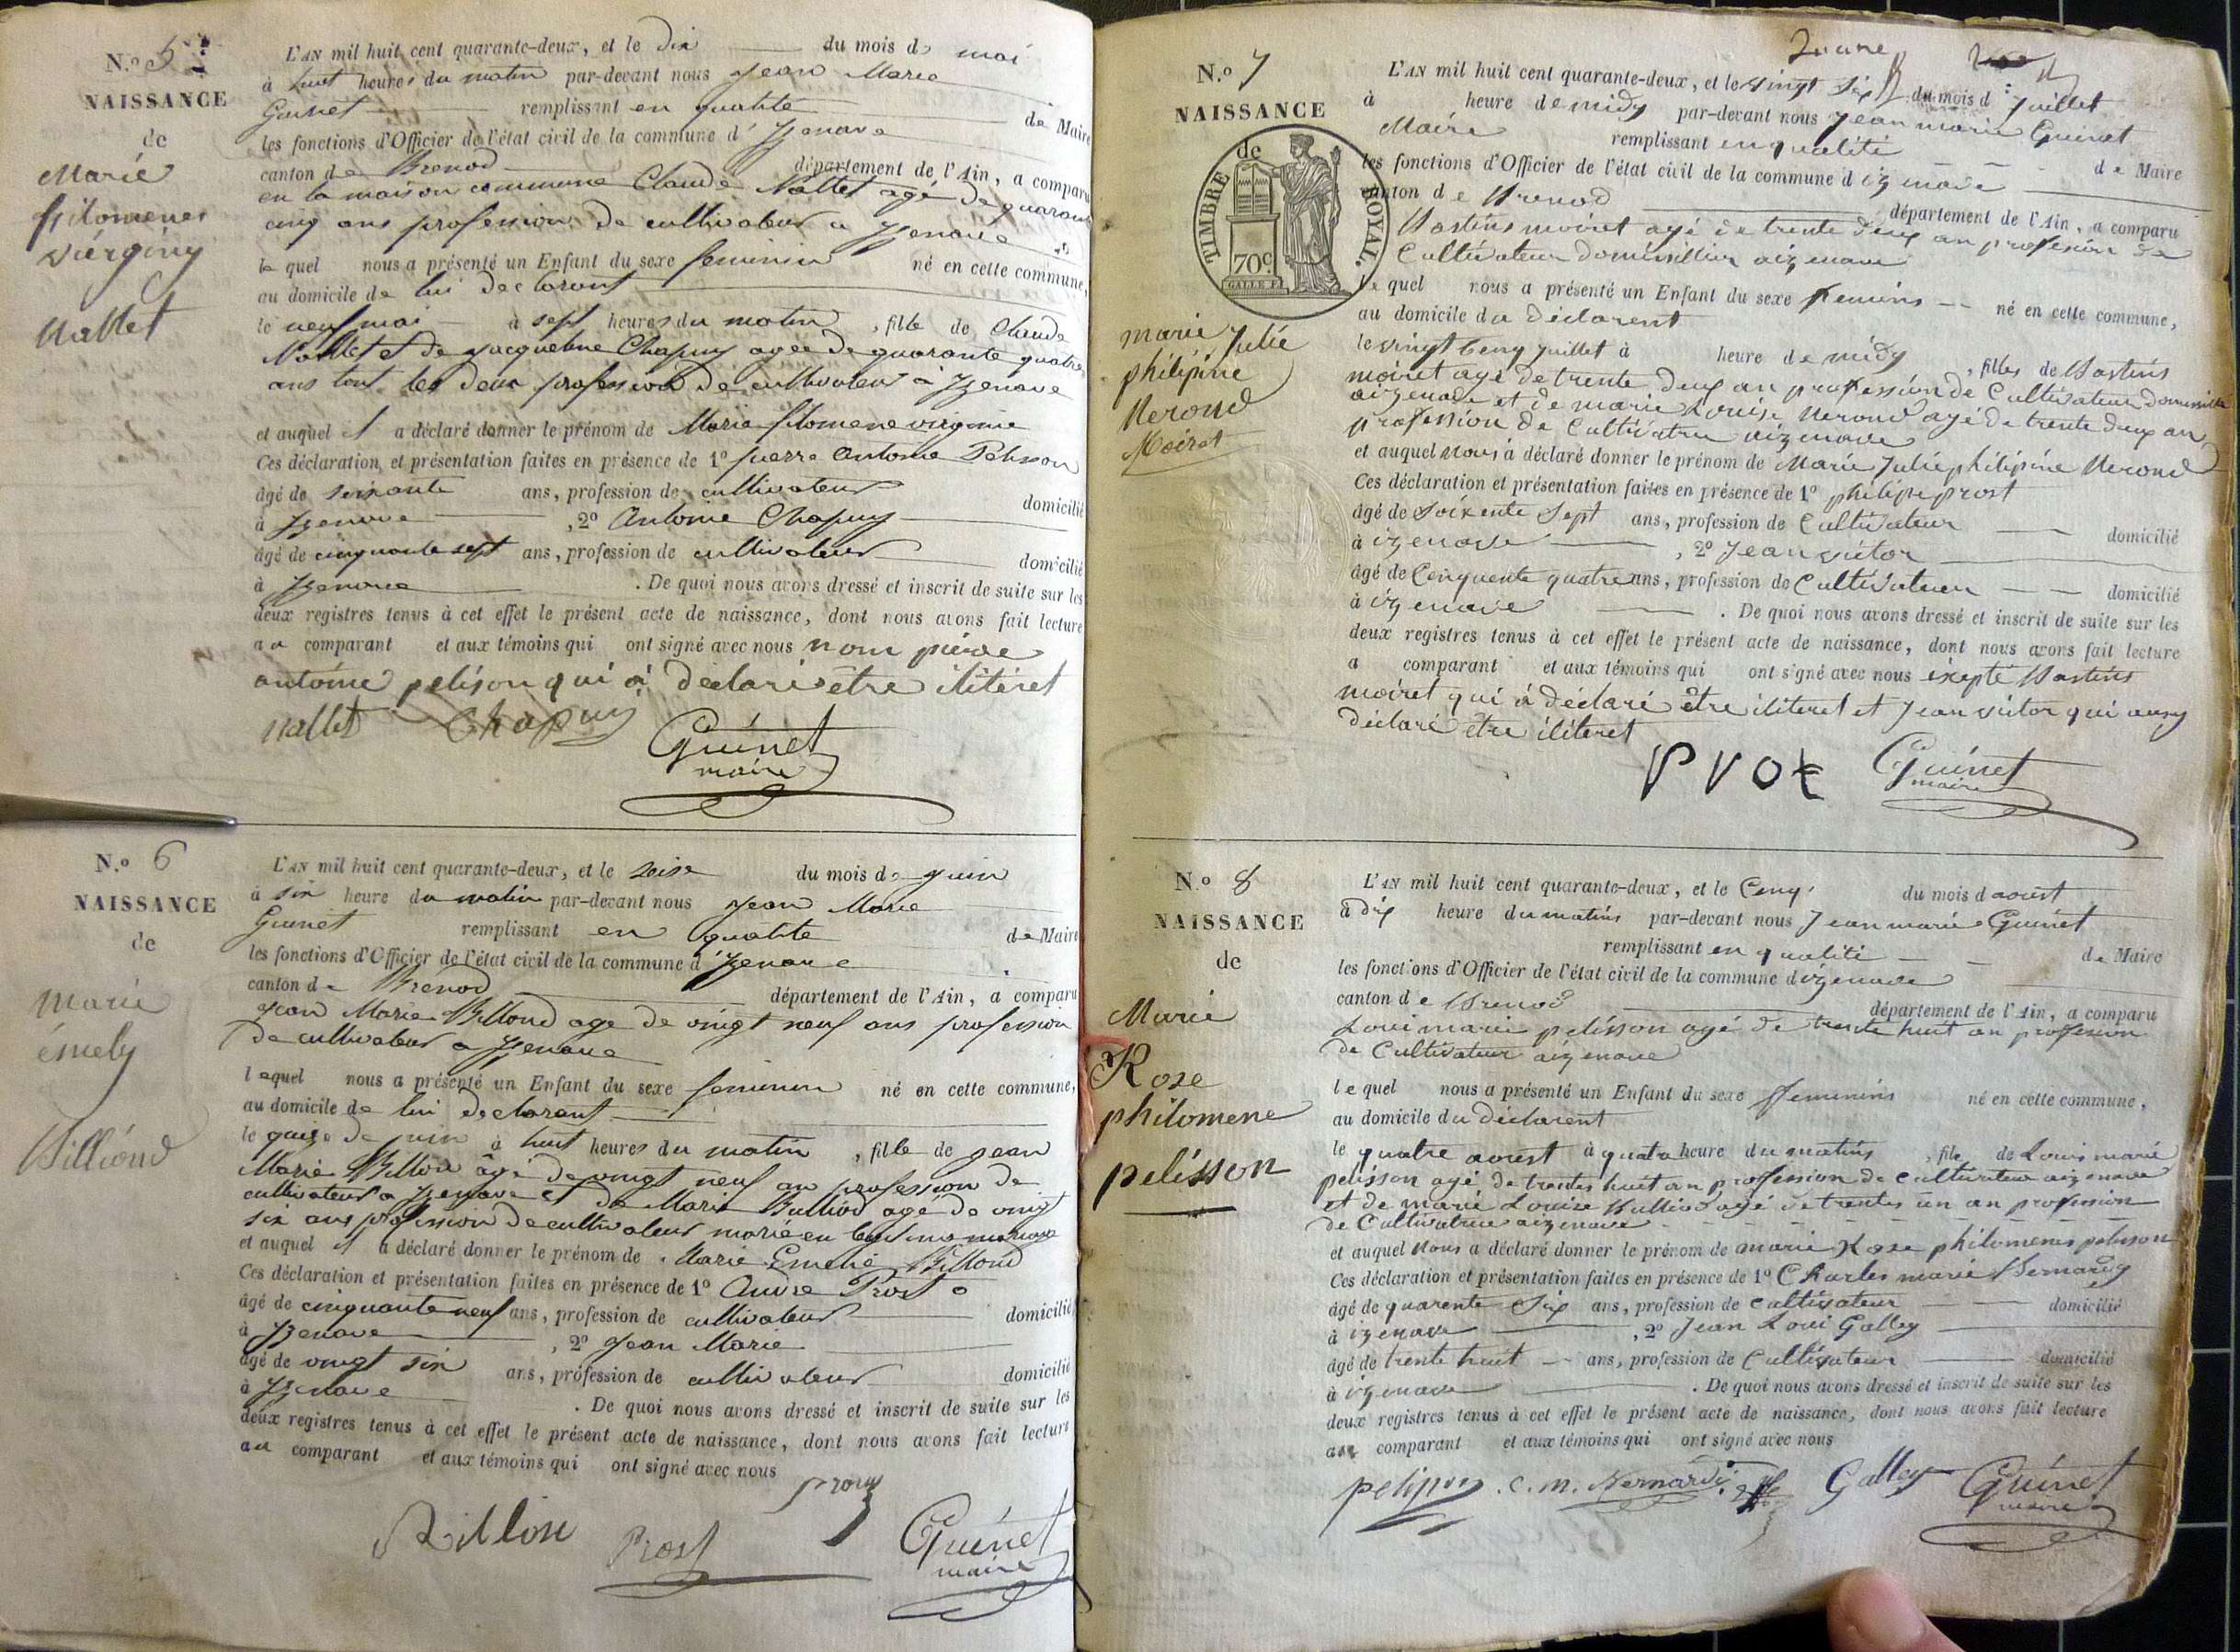 N.º 5
NAISSANCE
de
Marie
filomenes
viérginy
Nallet
L'AN mil huit cent quarante-deux, et le dix du mois de mai
à huit heures du matin par-devant nous Jean Marie
Guinet remplissant en qualité de Maire
les fonctions d'Officier de l'état civil de la commune d'Izenave
canton de Brenod département de l'Ain, a comparu
en la maison commune Claude Nallet agé de quarante
cinq ans profession de cultivateur a Izenave
le quel nous a présenté un Enfant du sexe feminin né en cette commune,
au domicile de lui declarant
le neuf mai à sept heures du matin, fille de Claude
Nallet et de Jacqueline Chapuy agee de quarante quatre
ans tout les deux profession de cultivateur à Izenave
et auquel il a déclaré donner le prénom de Marie filomene virginie
Ces déclaration et présentation faites en présence de 1º pierre Antoine Pelisson
âgé de soixante ans, profession de cultivateur domicilié
à Izenave, 2º Antoine Chapuy
âgé de cinquante sept ans, profession de cultivateur domicilié
à Izenave. De quoi nous avons dressé et inscrit de suite sur les
deux registres tenus à cet effet le présent acte de naissance, dont nous avons fait lecture
au comparant et aux témoins qui ont signé avec nous nom piérre
antoine pelison qui à déclaré être ilitéret
Nallet Chapuy Guinet
maire
N.º 6
NAISSANCE
de
Marie
émely
Billiond
L'AN mil huit cent quarante-deux, et le seise du mois de Juin
à six heure du matin par-devant nous Jean Marie
Guinet remplissant en qualité de Maire
les fonctions d'Officier de l'état civil de la commune d'Izenave
canton de Brénod département de l'Ain, a comparu
Jean Marie Billiond age de vingt neuf ans profession
de cultivateur a Izenave
lequel nous a présenté un Enfant du sexe feminin né en cette commune,
au domicile de lui declarant
le quize de juin à huit heures du matin, fille de Jean
Marie Billiod âgé de vingt neuf an profession de
cultivateur a Izenave et de Marie Bulliod agé de vingt
six ans profession de cultivateur marié en
et auquel il a déclaré donner le prénom de Marie Emelie Billiond
Ces déclaration et présentation faites en présence de 1º Andre Prost
âgé de cinquante neuf ans, profession de cultivateur domicilié
à Izenave, 2º Jean Marie
âgé de vingt six ans, profession de cultivateur domicilié
à Izenave. De quoi nous avons dressé et inscrit de suite sur les
deux registres tenus à cet effet le présent acte de naissance, dont nous avons fait lecture
au comparant et aux témoins qui ont signé avec nous
Billion Prost Guinet
maire
N.º 7
NAISSANCE
de
TIMBRE ROYAL.
70c
GALLE F.
marie Julie
philipine
Nerond
Moiret
L'AN mil huit cent quarante-deux, et le vingt six du mois d juillet
à heure de midy par-devant nous Jean marie Guinet
Maire remplissant en qualité de Maire
les fonctions d'Officier de l'état civil de la commune d izenave
canton de Brenod département de l'Ain, a comparu
Bastins moiret agé de trente deux an profession de
Cultivateur domissillier aizenave
le quel nous a présenté un Enfant du sexe feminins né en cette commune,
au domicile du déclarent
le vingt cenq juillet à heure de midy, filles de Bastins
moiret agé de trente deux an profession de Cultivateur
aizenave et de marie Louise Nerond agé de trente deux an
profession de Cultivatrie aizenave
et auquel nous à déclaré donner le prénom de Marie Julie philipine Nerond
Ces déclaration et présentation faites en présence de 1º philipe prost
âgé de soixente sept ans, profession de Cultivateur domicilié
à izenave, 2º Jean victor
âgé de Cenquente quatre ans, profession de Cultivateur domicilié
à izenave. De quoi nous avons dressé et inscrit de suite sur les
deux registres tenus à cet effet le présent acte de naissance, dont nous avons fait lecture
a comparant et aux témoins qui ont signé avec nous éxepté Bastins
moiret qui à déclaré être iliteret et Jean victor qui ausy
déclaré être iliteret
Prot Guinet
maire
N.º 8
NAISSANCE
de
Marie
Rose
philomene
pelisson
L'AN mil huit cent quarante-deux, et le Cenq du mois d aoust
à dix heure du matins par-devant nous Jean marie Guinet
remplissant en qualité de Maire
les fonctions d'Officier de l'état civil de la commune d izenave
canton de Brenod département de l'Ain, a comparu
Loui marie pelisson agé de trente huit an profession
de Cultivateur aizenave
le quel nous a présenté un Enfant du sexe feminins né en cette commune,
au domicile du déclarent
le quatre aoust à quatre heure du matins, file de Louis marie
pelisson agé de trentes huit an profession de cultivateur aizenave
et de marie Louise Bulliod agé de trentes un an profession
de Cultivatrie aizenave
et auquel nous a déclaré donner le prénom de marie Rose philomenes pelisson
Ces déclaration et présentation faites en présence de 1º Charles marie Bernardy
âgé de quarente six ans, profession de cultivateur domicilié
à izenave, 2º Jean Loui Galley
âgé de trente huit ans, profession de Cultivateur domicilié
à izenave. De quoi nous avons dressé et inscrit de suite sur les
deux registres tenus à cet effet le présent acte de naissance, dont nous avons fait lecture
au comparant et aux témoins qui ont signé avec nous
C. M. Bernardy Galley Guinet
maire